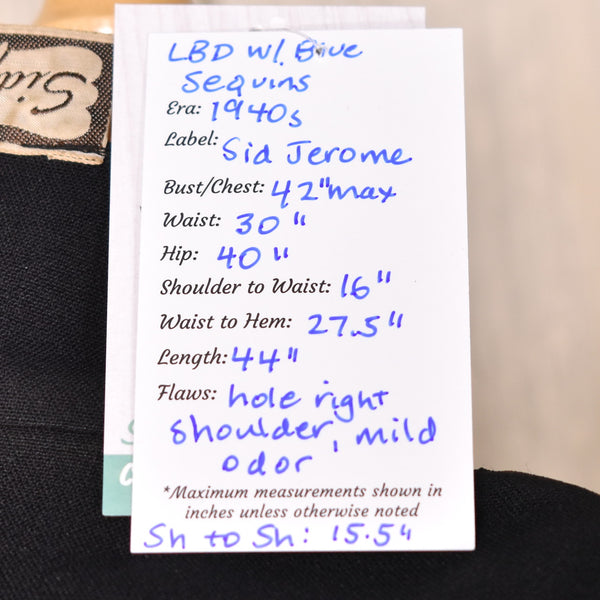 LBD w/ Blue
Sequins
Era: 1940s
Label: Sid Jerome
Bust/Chest: 42" max
Waist: 30"
Hip: 40"
Shoulder to Waist: 16"
Waist to Hem: 27.5"
Length: 44"
Flaws: hole right
shoulder, mild
odor
*Maximum measurements shown in
inches unless otherwise noted
Sh to Sh: 15.5"
Sid